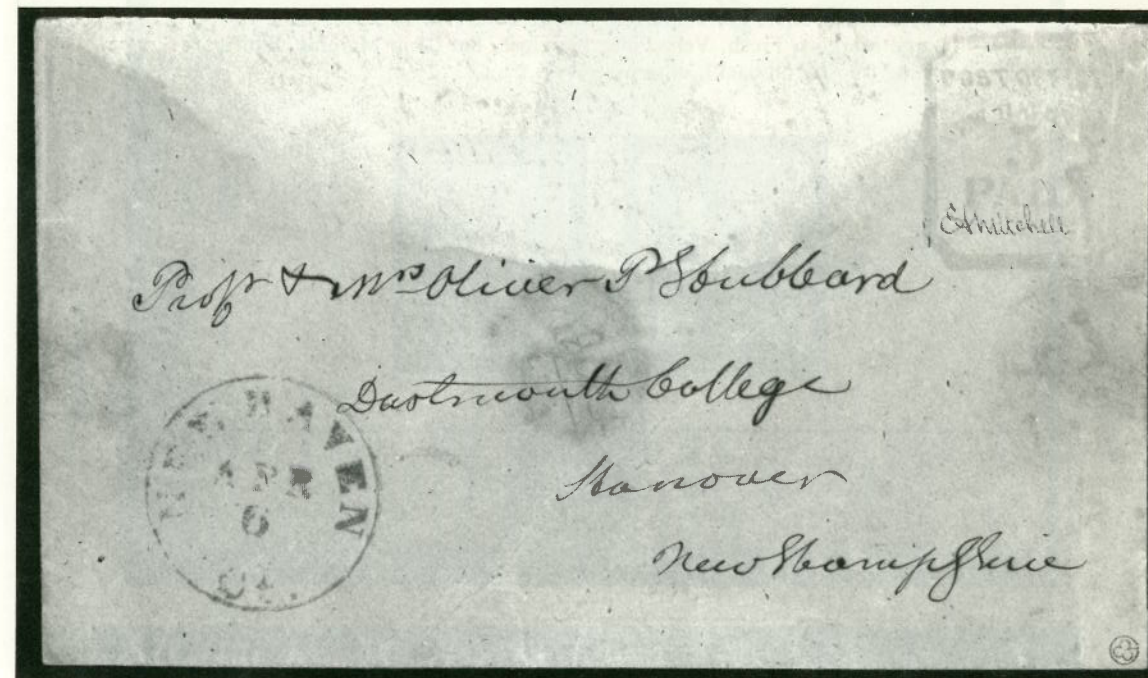 5
PAID
E A Mitchell
Profr & Mrs Oliver P Hubbard
Dartmouth College
Hanover
New Hampshire
NEW HAVEN
APR
6
CT.